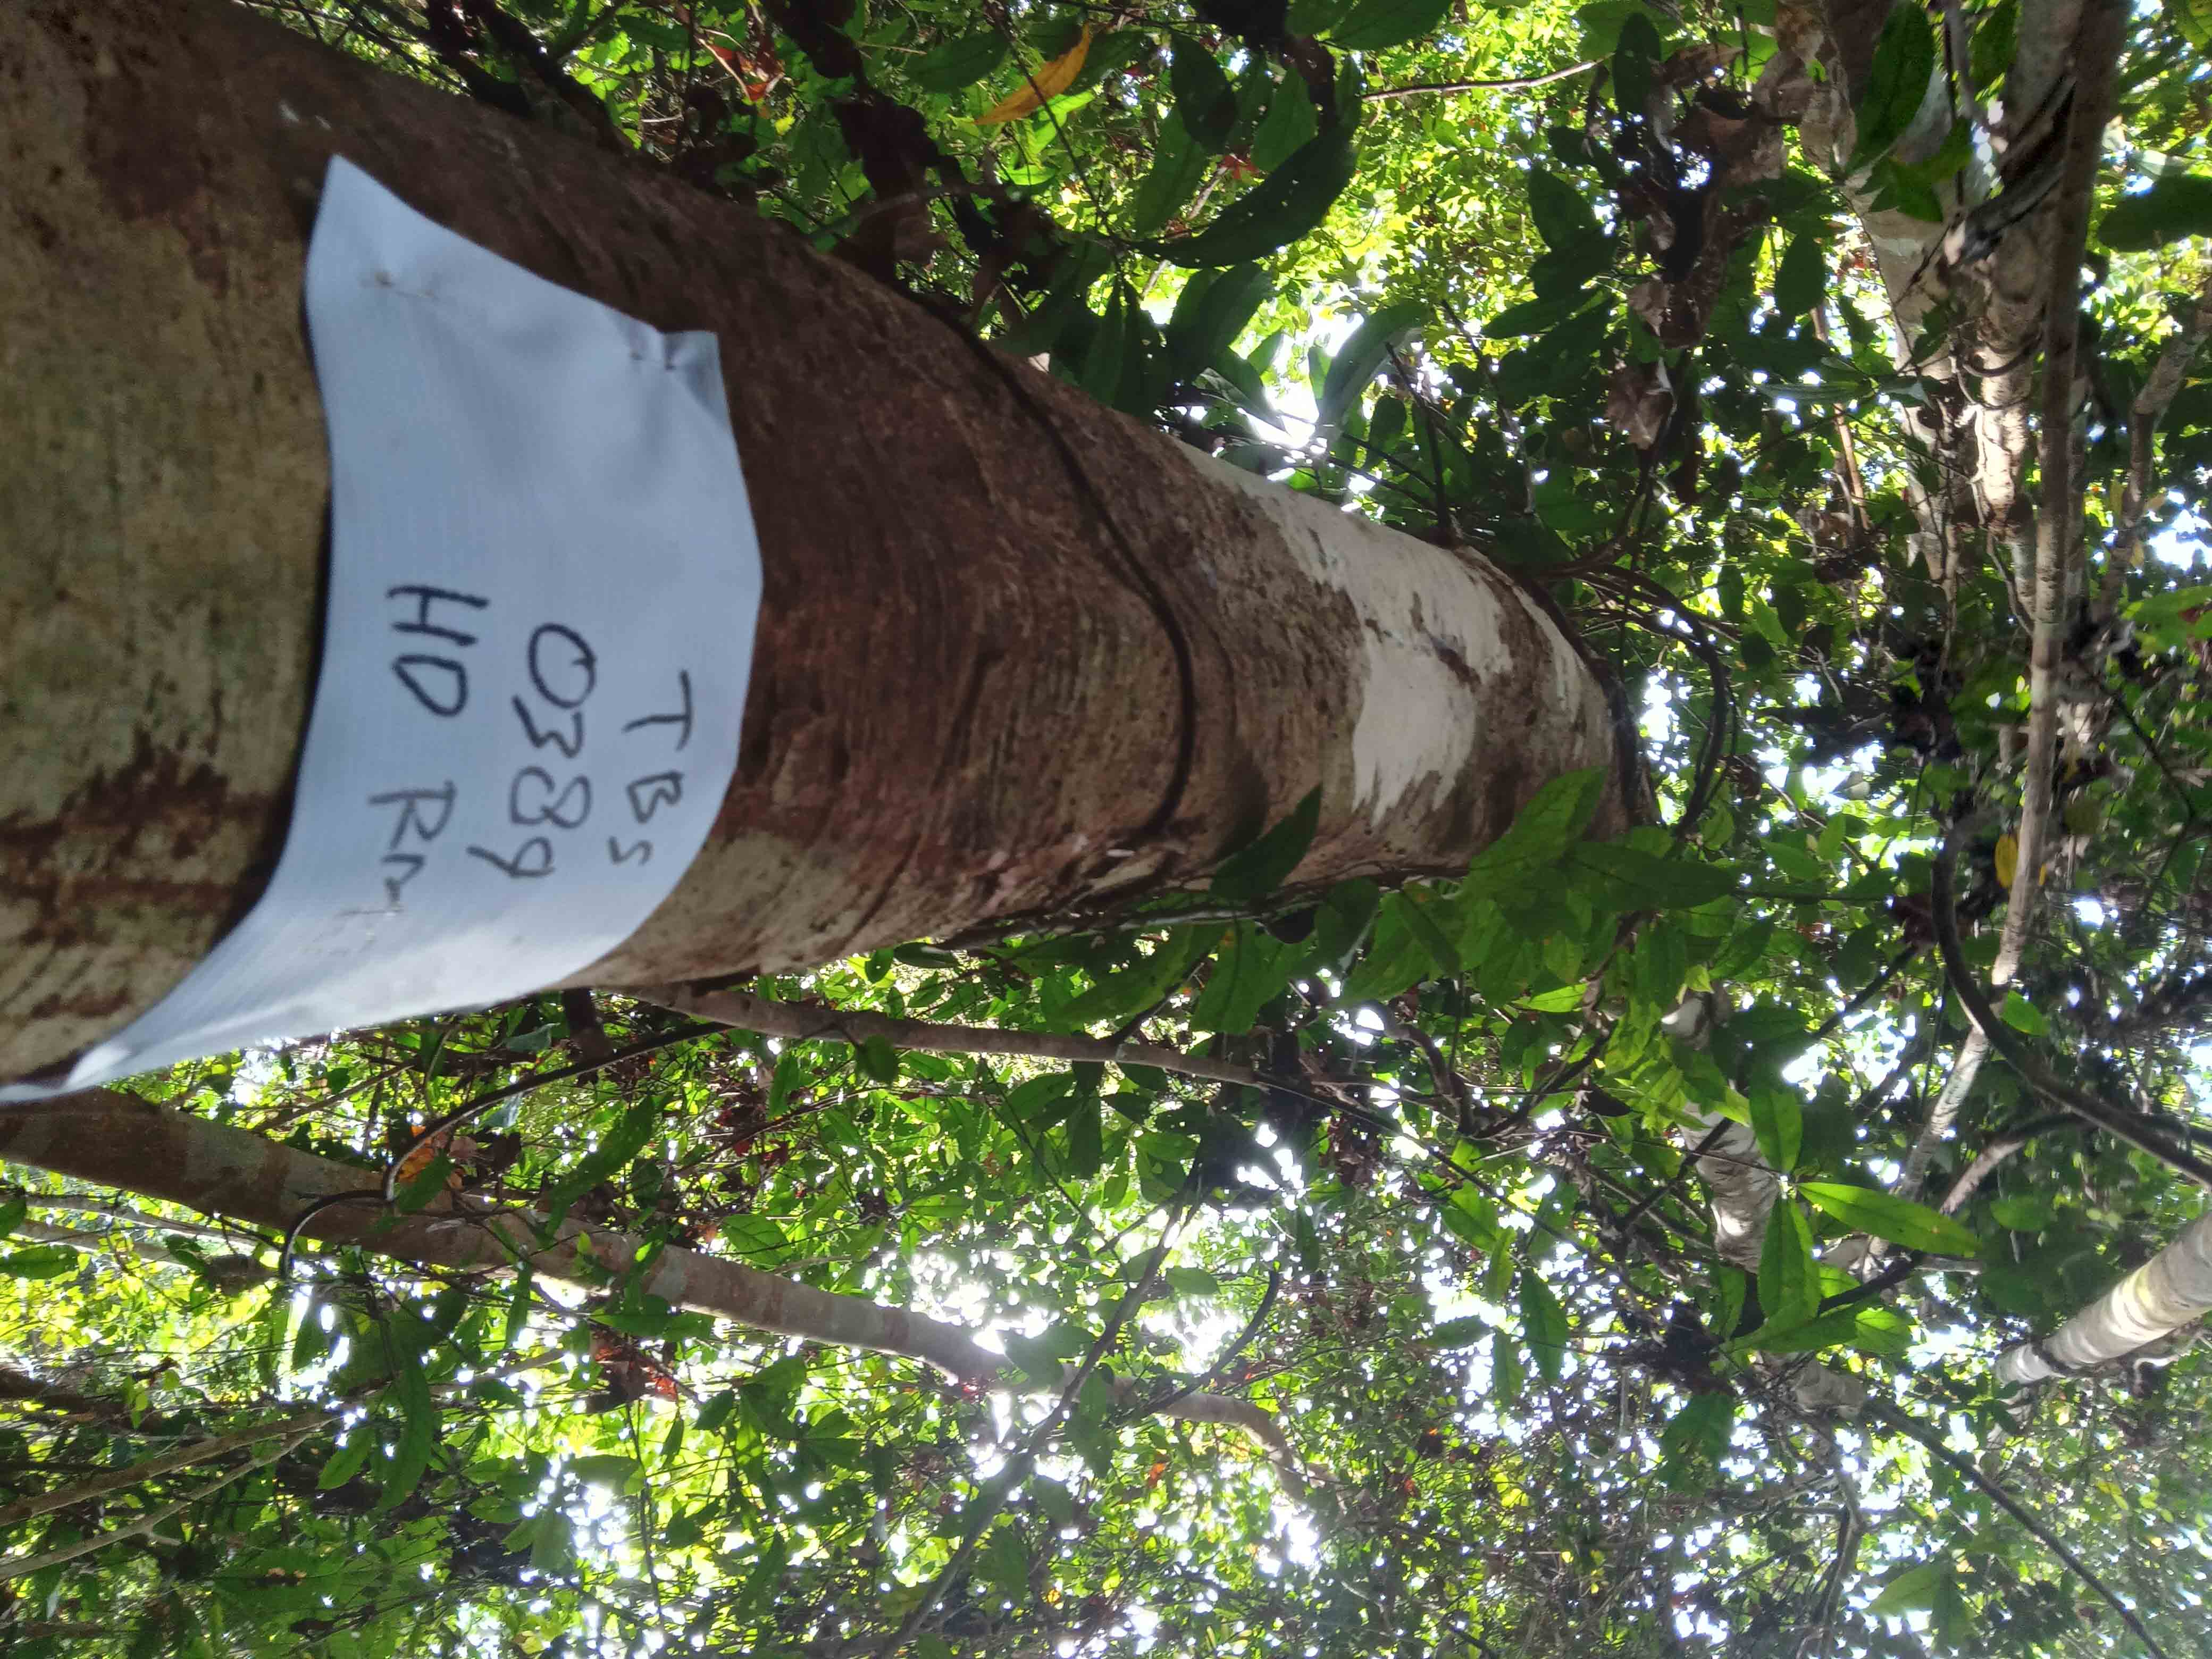 TBS
0389
HD Rmt